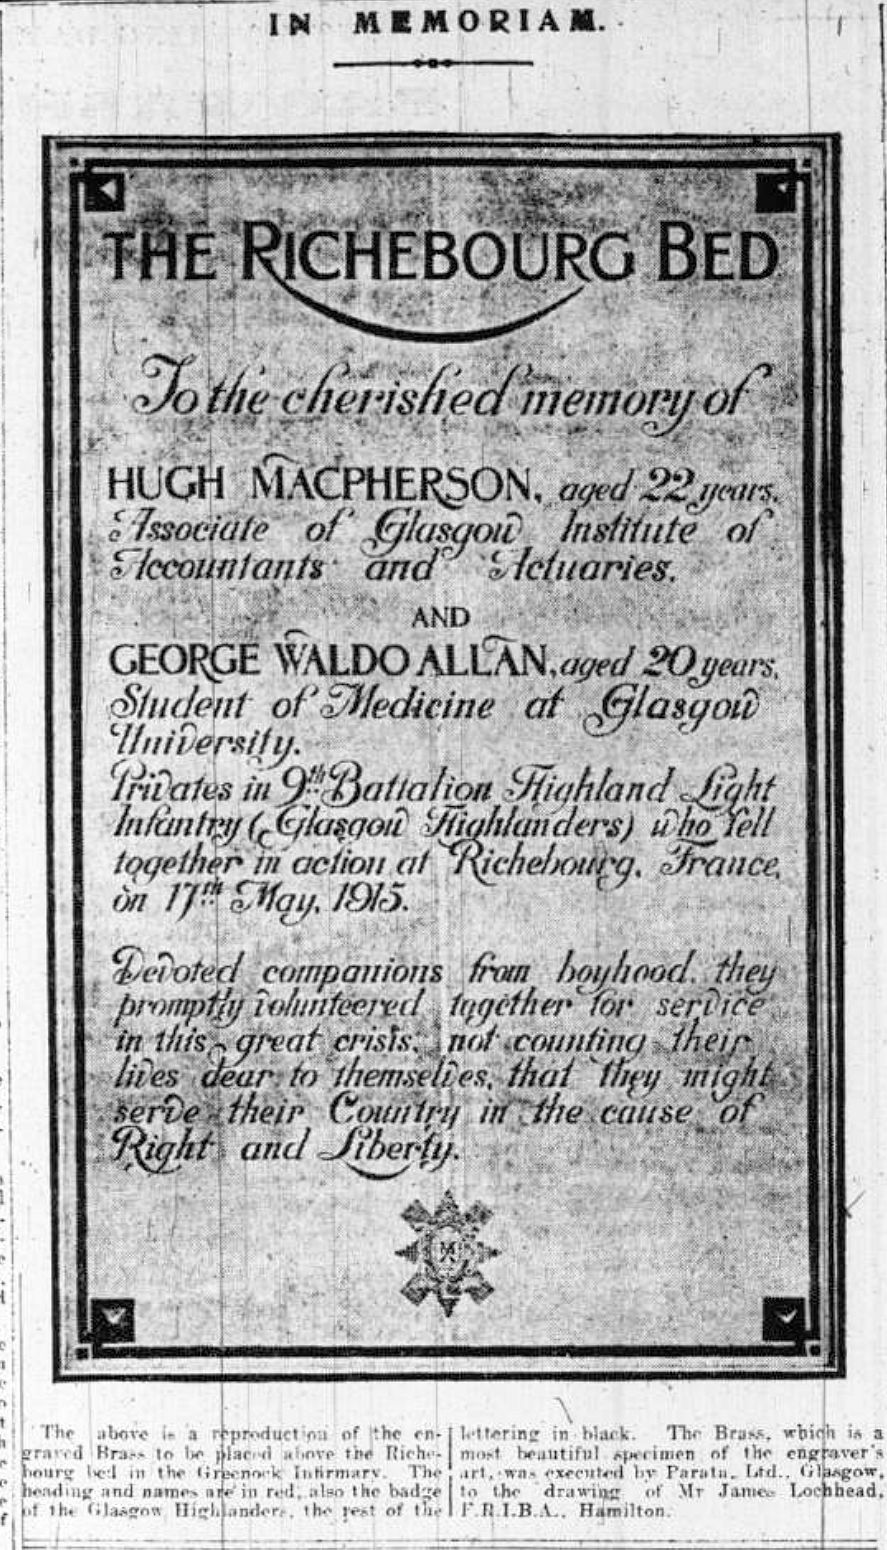 IN MEMORIAM.
THE RICHEBOURG BED
To the cherished memory of
HUGH MACPHERSON, aged 22 years,
Associate of Glasgow Institute of
Accountants and Actuaries.
AND
GEORGE WALDO ALLAN, aged 20 years,
Student of Medicine at Glasgow
University.
Privates in 9th Battalion Highland Light
Infantry (Glasgow Highlanders) who fell
together in action at Richebourg, France,
on 17th May, 1915.
Devoted companions from boyhood, they
promptly volunteered together for service
in this great crisis, not counting their
lives dear to themselves, that they might
serve their Country in the cause of
Right and Liberty.
The above is a reproduction of the en-
graved Brass to be placed above the Riche-
bourg bed in the Greenock Infirmary. The
heading and names are in red, also the badge
of the Glasgow Highlanders, the rest of the
lettering in black. The Brass, which is a
most beautiful specimen of the engraver's
art, was executed by Parata, Ltd., Glasgow,
to the drawing of Mr James Lochhead,
F.R.I.B.A., Hamilton.